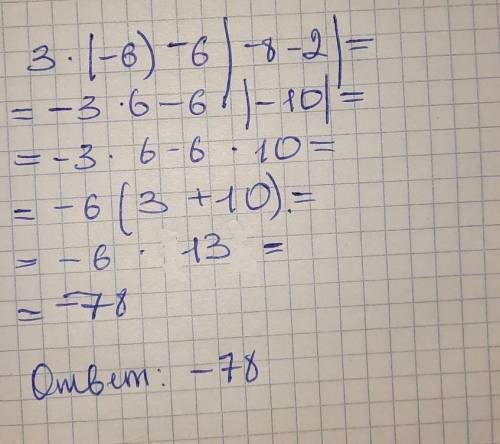 3 · (-6) - 6 |-8 - 2| =
= -3 · 6 - 6 |-10| =
= -3 · 6 - 6 · 10 =
= -6 (3 + 10) =
= -6 · 13 =
= -78
Ответ: -78